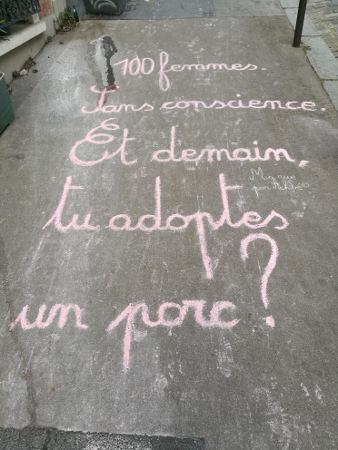 100 femmes.
Sans conscience.
Et demain,
tu adoptes
un porc ?